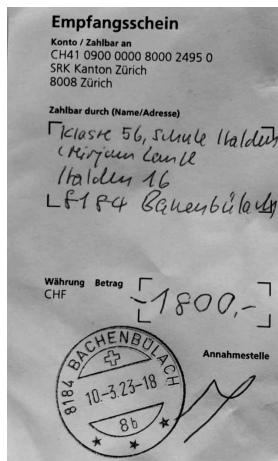 Empfangsschein
Konto / Zahlbar an
CH41 0900 0000 8000 2495 0
SRK Kanton Zürich
8008 Zürich
Zahlbar durch (Name/Adresse)
Klasse 56, Schule Halden
Mirjam
Halden 16
8184 Bachenbülach
Währung Betrag
CHF
-1800,-
Annahmestelle
8184 BACHENBÜLACH
10.-3.23-18
8b